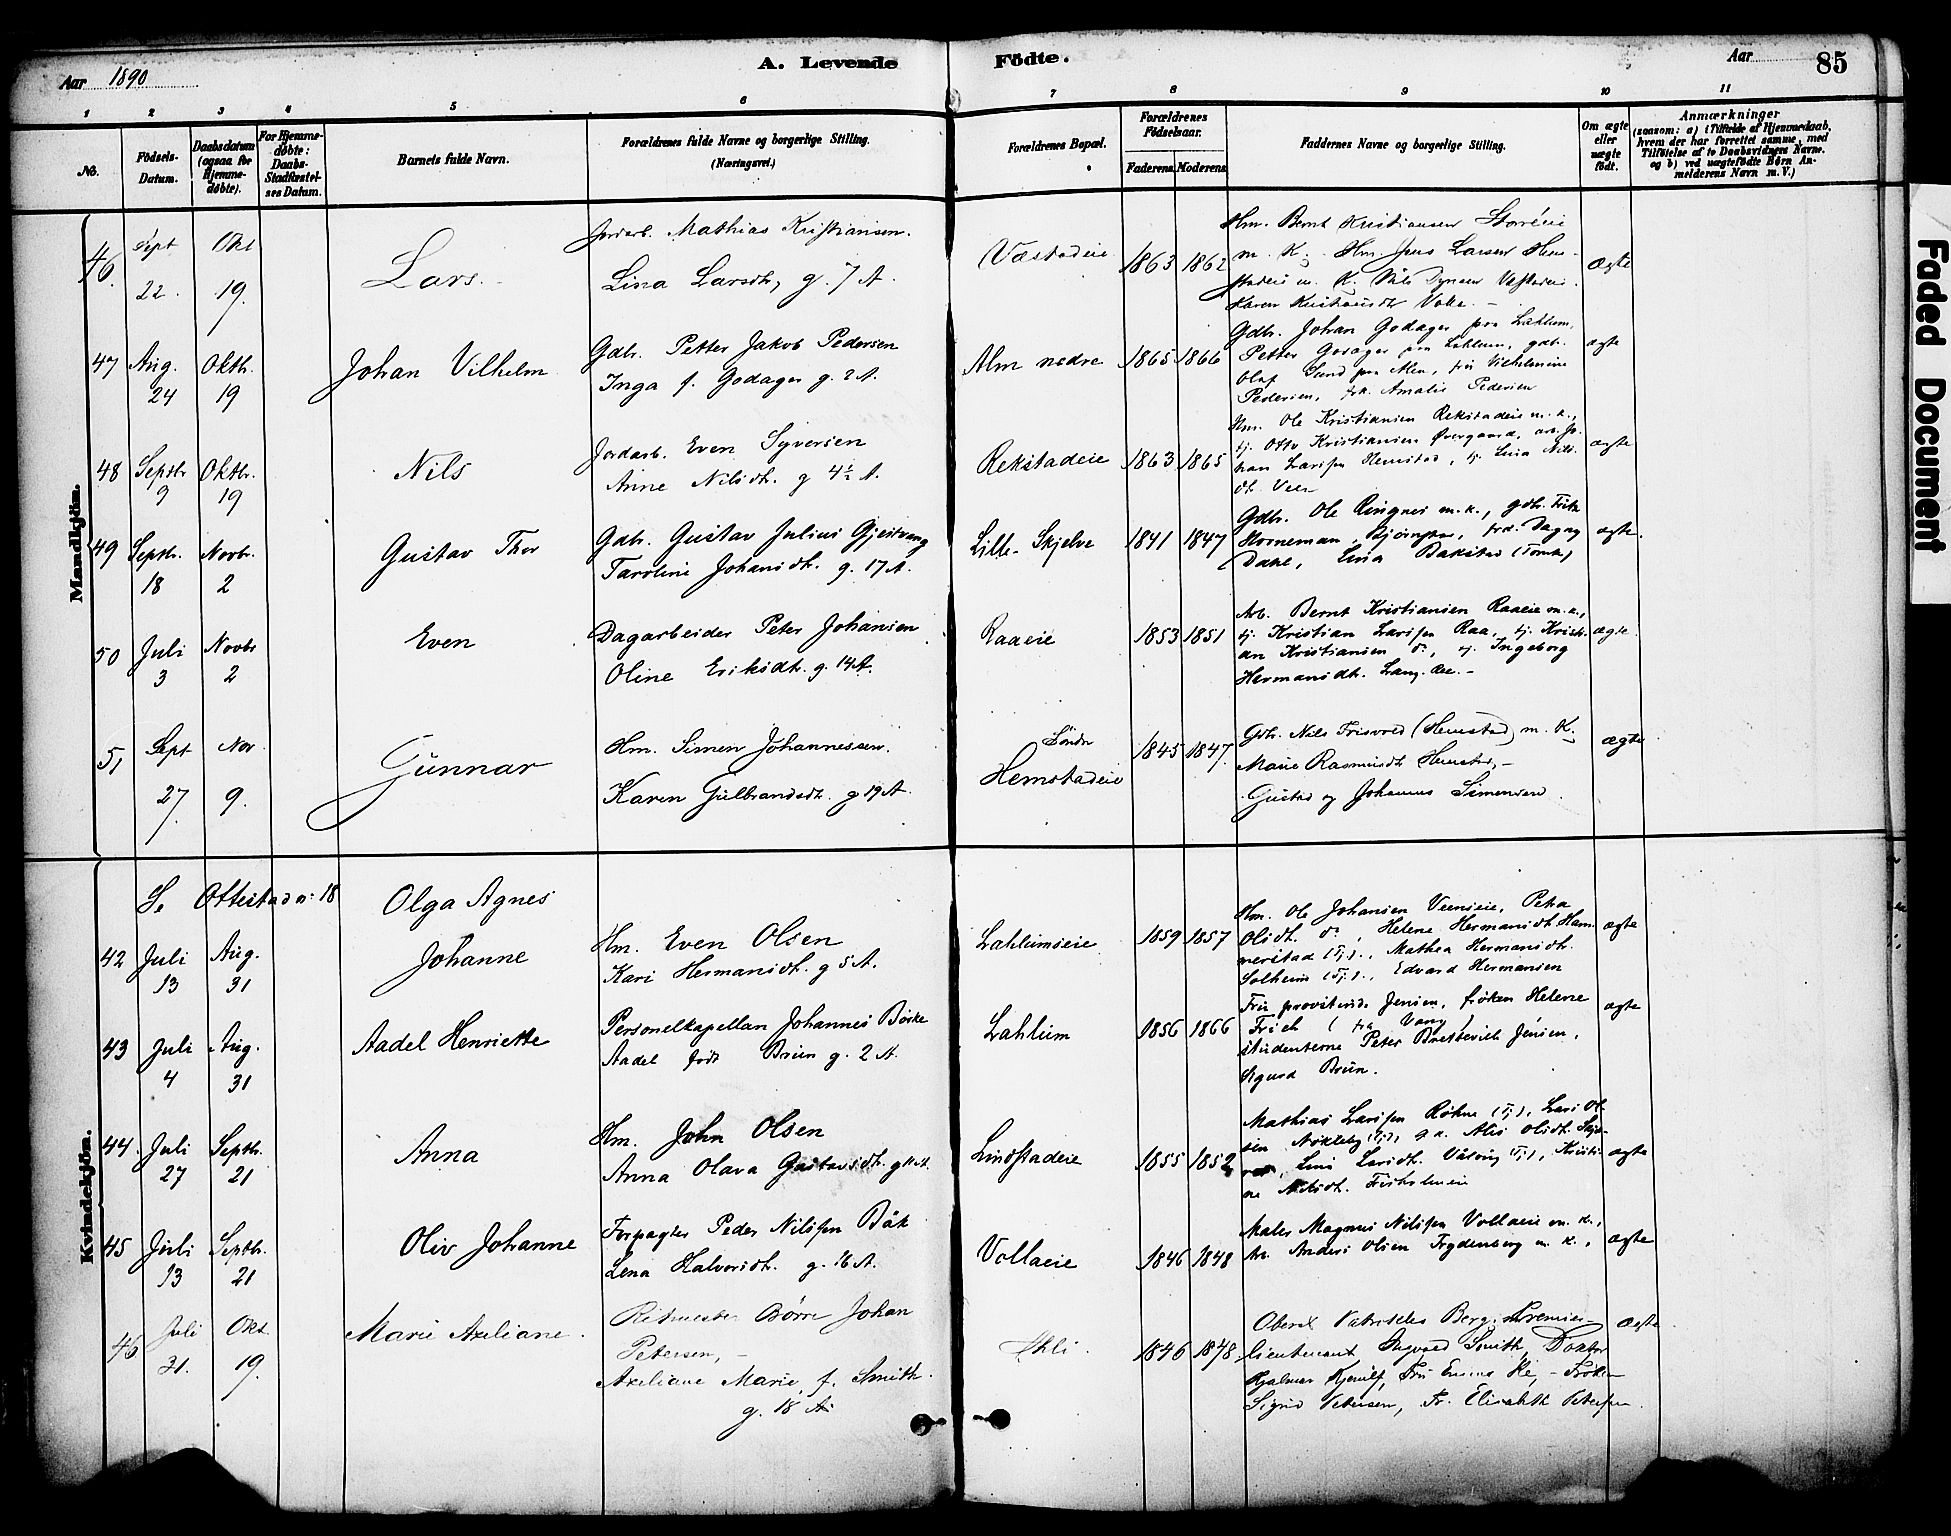 Aar 1890
A. Levende Födte.
Aar
85
1 2 3 4 5 6 7 8 9 10 11
No.
Födsels-
Datum.
Daabsdatum
(ogsaa for
Hjemme-
døbte).
For Hjemme-
døbte:
Daabs-
Stadfæstel-
ses Datum.
Barnets fulde Navn.
Forældrenes fulde Navne og borgerlige Stilling.
(Næringsvei.)
Forældrenes Bopæl.
Forældrenes
Födselsaar.
Faderens Moderens
Faddernes Navne og borgerlige Stilling.
Om ægte
eller
uægte
født.
Anmærkninger
(saasom: a) i Tilfælde af Hjemmedaab,
hvem der har forrettet samme, med
Tilföielse af to Daabsvidners Navne.
og b) ved uægtefödte Börn An-
melderens Navn m. V.)
Mandkjön.
46. Sept 22. Okt 19.
Lars.
Jordarb. Mathias Kristiansen.
Lina Larsdtr, g. 7 A.
Væstadeie 1863 1862
Hm. Bernt Kristiansen
m. K. Hm. Jens Larsen Hem-
stadeie m. K.
ægte
47 Aug. 24 Oktbr. 19
Johan Vilhelm
Gdbr. Petter Jakob Pedersen
Inga f. Godager g. 2 A.
Alm nedre 1865 1866
Gdbr. Johan Godager paa Lahlum,
Petter Godager paa Lahlum, gdbr.
Olaf Sund paa Alm, fru Vilhelmine
Pedersen, frk. Amalie Pedersen
ægte
48 Septbr 9 Oktbr. 19
Nils
Jordarb. Even Syversen
Anne Nilsdtr. g 4½ A.
Rekstadeie 1863 1865
Hm. Ole Kristiansen Rekstadeie m. k.,
tj. Otto Kristiansen Overgaard, arb. Jo-
han Larssen Hemstad, tj. Lina Nils-
dt. Veen
ægte
49 Septbr. 18 Novbr. 2
Gustav Thor
Gdb. Gustav Julius Gjestvang
Taroline Johansdtr. g. 17 A.
Lille-Skjelve 1841 1847
Gdbr. Ole Ringnes m. k., gdbr. Fritz
Horneman, frk. Dagny
Lina Bakstad (Tomt)
ægte.
50 Juli 3 Novbr 2
Even
Dagarbeider Peter Johansen
Oline Eriksdtr. g. 14 A.
Raaeie 1853 1851
Arb. Bernt Kristiansen Raaeie m. k.,
tj. Kristian Larssen Raa, tj. Kristi-
an Kristiansen do, tj. Ingeborg
Hermansdtr.
ægte
51 Sept 27. Nov. 9.
Gunnar
Hm. Simen Johannessen.
Karen Gulbrandsdtr. g 19 A.
Söndr
Hemstadeie 1845 1847.
Gdbr. Nils Frisvold (Hemstad) m. K.
Marie Rasmusdtr Hemstad, -
Gustav og Johannes Simensen.
ægte
Kvindekjön.
Se Ottestad n: 18
Olga Agnes
42 Juli 13 Aug. 31
Johanne
Hm. Even Olsen
Kari Hermansdtr. g 5 A.
Lahlumseie 1859 1857
Hm. Ole Johansen Veenseie, Petra
Olsdt. do, Helene Hermansdtr Ham-
merstad (Tj.), Mathea Hermansdtr.
Solheim (Tj.), Edvard Hermansen
ægte
43 Juli 4 Aug. 31
Aadel Henriette
Personelkapellan Johannes Börke
Aadel født Bruun g. 2 A.
Lahlum 1856 1866
Fru provstinde Jensen, frøken Helene
Frich (fra Vang)
studenterne Peter Bretteville Jensen,
Sigurd Bruun.
ægte
44. Juli 27 Septbr. 21
Anna
Hm. John Olsen
Anna Olava Gustavsdtr. g 11 A.
Lindstadeie 1855 1852
Mathias Larssen Røhne (Tj.), Lars Ol-
sen Nøkleby (Tj.), g. k. Alis Olsdtr.
Lina Larsdtr. (Tj.), Kristi-
ne Nilsdtr.
ægte
45 Juli 13 Septbr. 21
Oliv Johanne
Forpagter Peder Nilssen Bök
Lena Halvorsdtr. g. 16 A.
Vollaeie 1846 1848
Maler Magnus Nilssen Vollaeie m. k.,
Anders Olsen Frydenberg m. k.,
ægte
46 Juli 31. Okt. 19.
Marie Axeliane.
Ritmester Börre Johan
Petersen, -
Axeliane Marie, f. Smith.
g. 18 A.
1846 1848.
Oberst Patroklus Berg, Premier-
lieutenant Ingvald Smith, Doktor
Hjalmar Fru Emma - Frøken
Sigrid Petersen, Fr. Elisabeth Petersen.
ægte
Faded Document